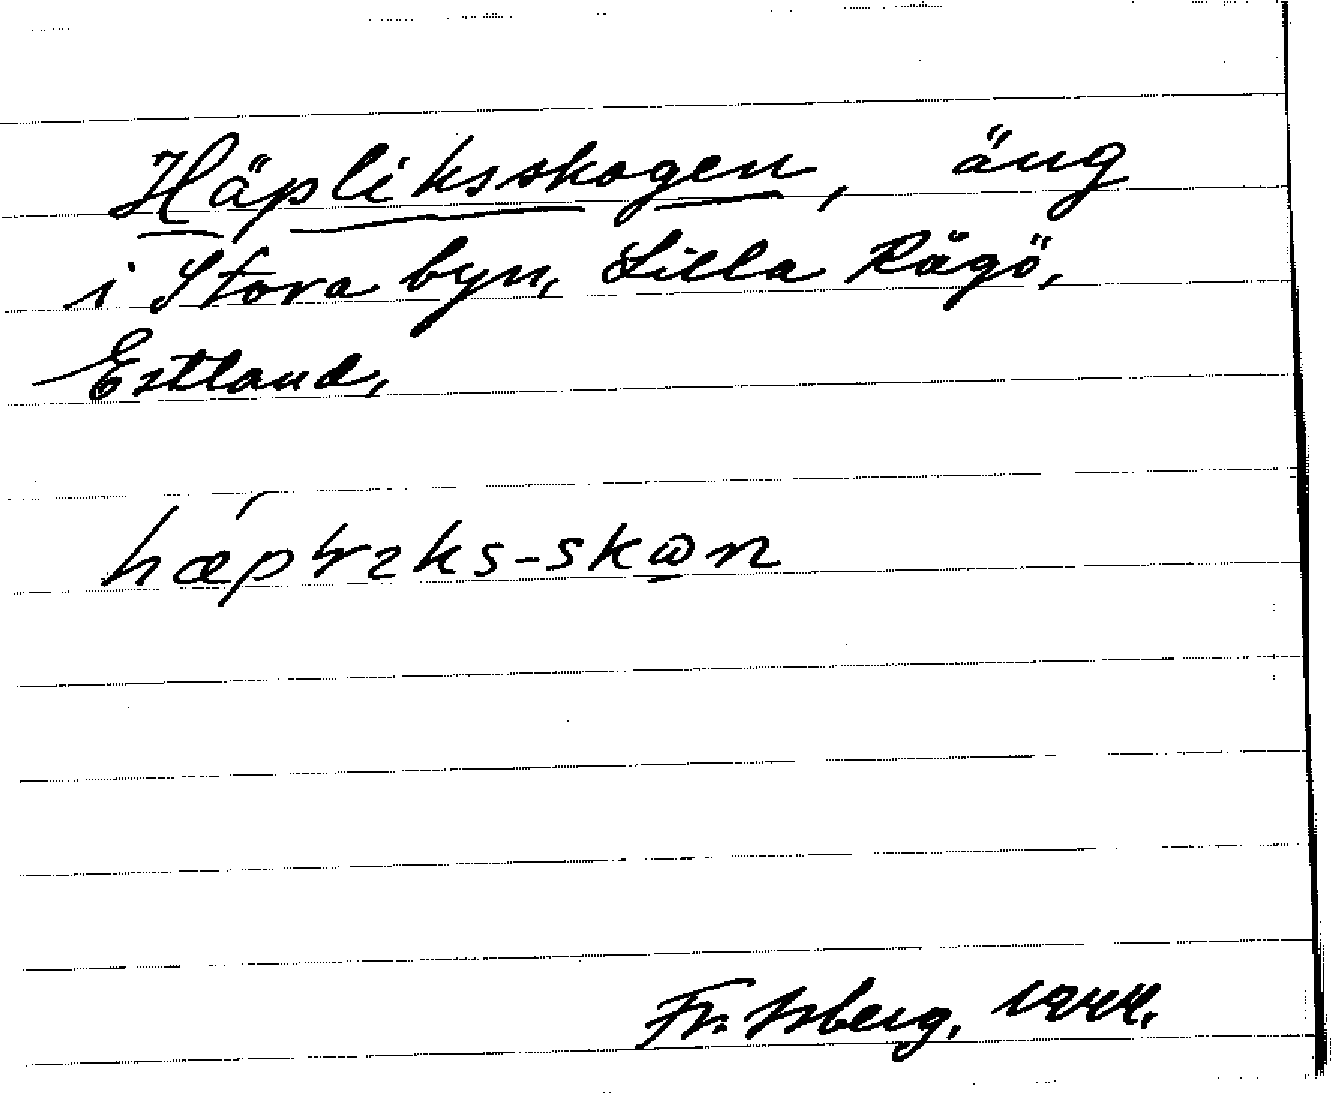 Häpliksskogen, äng
i Stora byn, Lilla Rågö,
Estland.
Fr. Isberg, 1944.